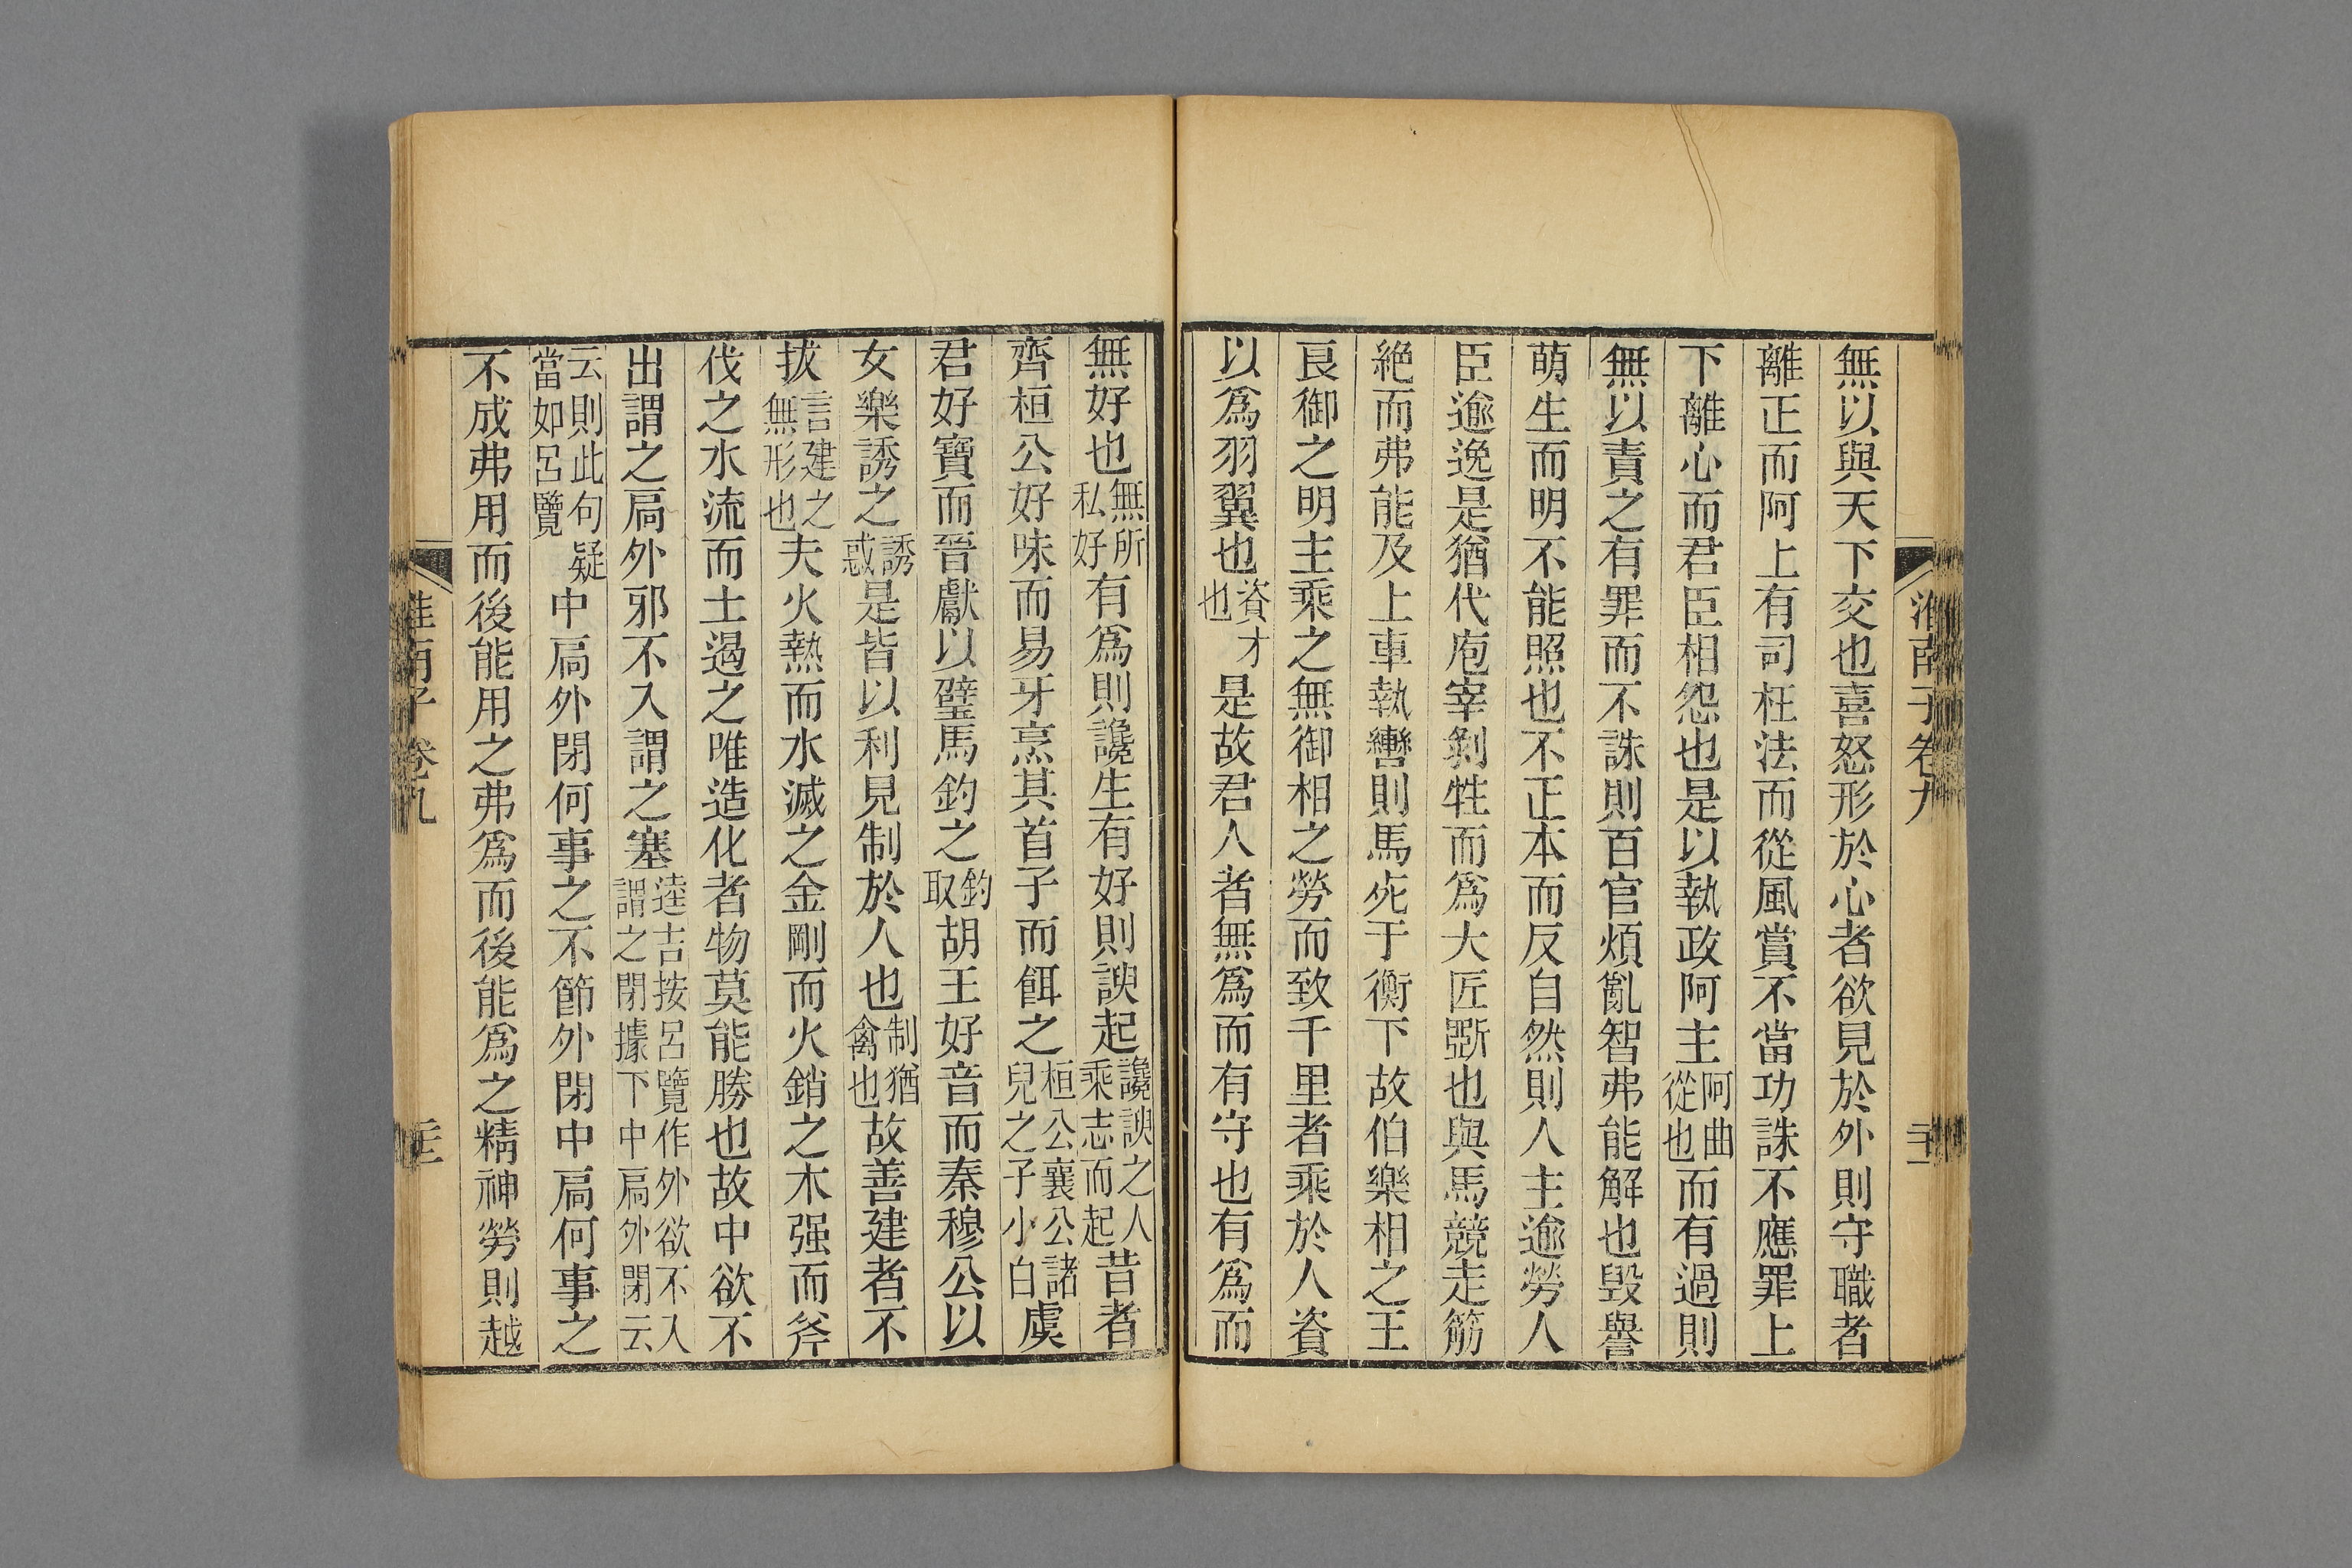 淮南子卷九
無以與天下交也喜怒形於心者欲見於外則守職者
離正而阿上有司枉法而從風賞不當功誅不應罪上
下離心而君臣相怨也是以執政阿主阿曲從也而有過則
無以責之有罪而不誅則百官煩亂智弗能解也毀譽
萌生而明不能照也不正本而反自然則人主逾勞人
臣逾逸是猶代庖宰剝牲而爲大匠斲也與馬競走筋
絕而弗能及上車執轡則馬死于衡下故伯樂相之王
良御之明主乘之無御相之勞而致千里者乘於人資
以爲羽翼也資才也是故君人者無爲而有守也有爲而
無好也無所私好有爲則讒生有好則諛起讒諛之人乘志而起昔者
齊桓公好味而易牙烹其首子而餌之桓公襄公諸兒之子小白虞
君好寶而晉獻以璧馬釣之釣取胡王好音而秦穆公以
女樂誘之誘惑是皆以利見制於人也制猶禽也故善建者不
拔言建之無形也夫火熱而水滅之金剛而火銷之木强而斧
伐之水流而土遏之唯造化者物莫能勝也故中欲不
出謂之扃外邪不入謂之塞逵吉按呂覽作外欲不入謂之閉據下中扃外閉云
云則此句疑當如呂覽中扃外閉何事之不節外閉中扃何事之
不成弗用而後能用之弗爲而後能爲之精神勞則越
淮南子 卷九